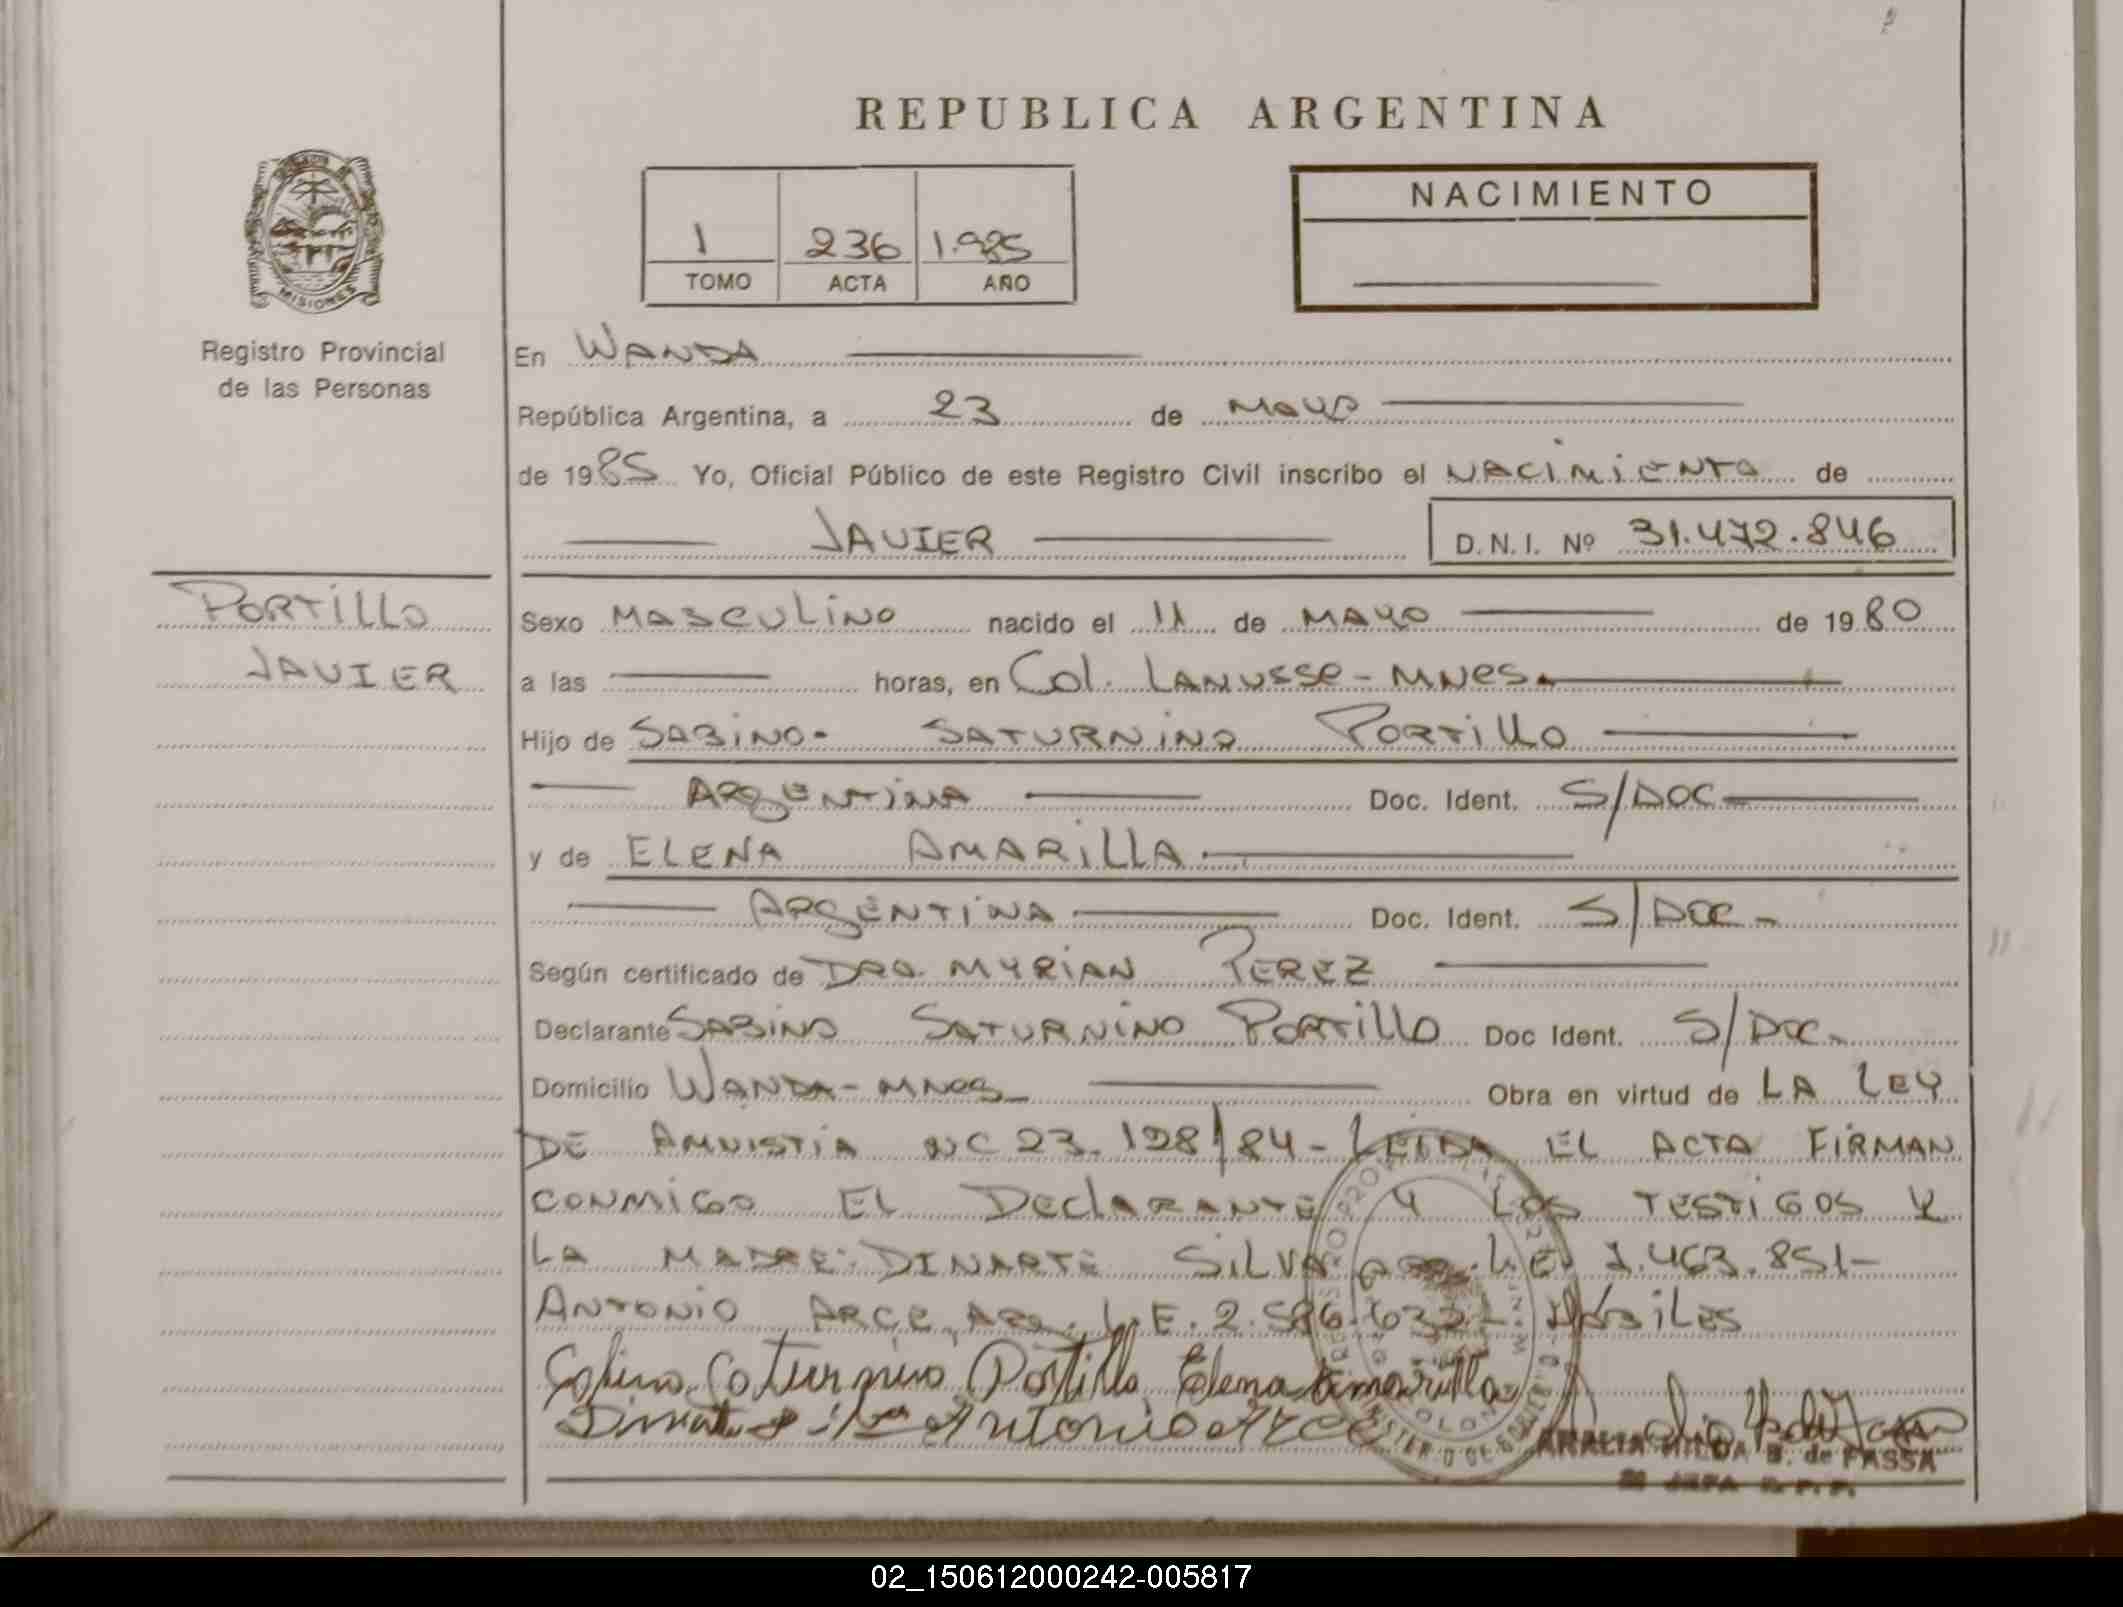 REPUBLICA ARGENTINA
NACIMIENTO
1 236 1.985
TOMO ACTA AÑO
MISIONES
Registro Provincial
de las Personas
En WANDA
República Argentina, a 23 de MAYO
de 1985 Yo, Oficial Público de este Registro Civil inscribo el NACIMIENTO de
JAVIER D.N.I. Nº 31.472.846
PORTILLO
JAVIER
Sexo MASCULINO nacido el 11 de MAYO de 1980
a las horas, en Col. LANUSSE - MNES.
Hijo de SABINO- SATURNINO PORTILLO
ARGENTINA Doc. Ident. S/DOC
y de ELENA AMARILLA
ARGENTINA Doc. Ident. S/DOC-
Según certificado de DRA. MYRIAN PEREZ
Declarante SABINO SATURNINO PORTILLO Doc Ident. S/DOC-
Domicilio WANDA - MNES Obra en virtud de LA LEY
DE AMNISTIA 23.128/84- LEIDA EL ACTA FIRMAN
CONMIGO EL DECLARANTE Y LOS TESTIGOS Y
LA MADRE: DINARTE SILVA L.E. 1.463.851-
ANTONIO ARCE, ARG. L.E. 2.586.632- HÁBILES
Sabino Saturnino Portillo Elena Amarilla
Antonio ARCE
ANALIA HILDA B. de FASSA
JEFA R. P. P.
02_150612000242-005817